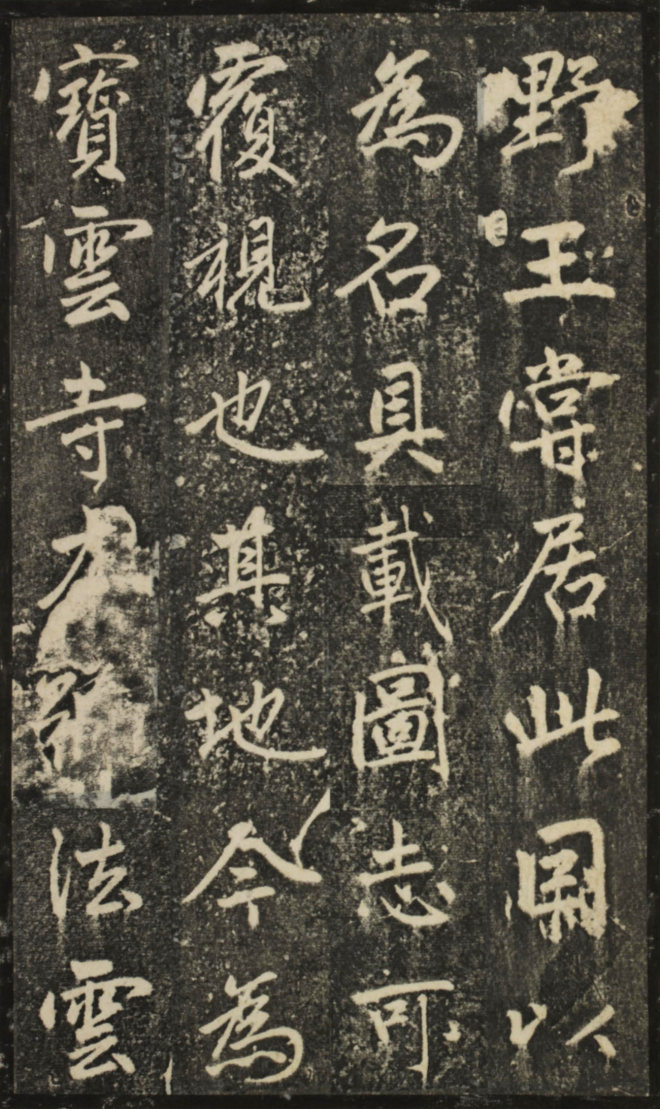 野王嘗居此因以
為名具載圖志可
覆視也其地今為
寶雲寺大號法雲